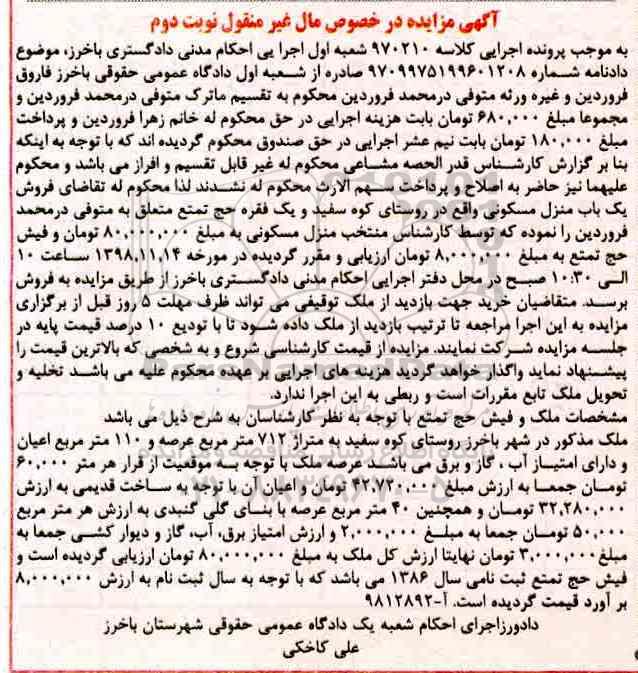 آگهی مزایده در خصوص مال غیر منقول نوبت دوم
به موجب پرونده اجرایی کلاسه ۹۷۰۲۱۰ شعبه اول اجرا یی احکام مدنی دادگستری باخرز، موضوع
دادنامه شماره ۹۷۰۹۹۷۵۱۹۹۶۰۱۲۰۸ صادره از شعبه اول دادگاه عمومی حقوقی باخرز فاروق
فروردین و غیره ورثه متوفی درمحمد فروردین محکوم به تقسیم ماترک متوفی درمحمد فروردین و
مجموعا مبلغ ۶۸۰,۰۰۰ تومان بابت هزینه اجرایی در حق محکوم له خانم زهرا فروردین و پرداخت
مبلغ ۱۸۰,۰۰۰ تومان بابت نیم عشر اجرایی در حق صندوق محکوم گردیده اند که با توجه به اینکه
بنا بر گزارش کارشناس قدر الحصه مشاعی محکوم له غیر قابل تقسیم و افراز می باشد و محکوم
علیهما نیز حاضر به اصلاح و پرداخت سهم الارث محکوم له نشدند لذا محکوم له تقاضای فروش
یک باب منزل مسکونی واقع در روستای کوه سفید و یک فقره حج تمتع متعلق به متوفی درمحمد
فروردین را نموده که توسط کارشناس منتخب منزل مسکونی به مبلغ ۸۰,۰۰۰,۰۰۰ تومان و فیش
حج تمتع به مبلغ ۸,۰۰۰,۰۰۰ تومان ارزیابی و مقرر گردیده در مورخه ۱۳۹۸,۱۱,۱۴ ساعت ۱۰
الی ۱۰:۳۰ صبح در محل دفتر اجرایی احکام مدنی دادگستری باخرز از طریق مزایده به فروش
برسد. متقاضیان خرید جهت بازدید از ملک توقیفی می تواند ظرف مهلت ۵ روز قبل از برگزاری
مزایده به این اجرا مراجعه تا ترتیب بازدید از ملک داده شود تا با تودیع ۱۰ درصد قیمت پایه در
جلسه مزایده شرکت نمایند. مزایده از قیمت کارشناسی شروع و به شخصی که بالاترین قیمت را
پیشنهاد نماید واگذار خواهد گردید هزینه های اجرایی بر عهده محکوم علیه می باشد تخلیه و
تحویل ملک تابع مقررات است و ربطی به این اجرا ندارد.
مشخصات ملک و فیش حج تمتع با توجه به نظر کارشناسان به شرح ذیل می باشد
ملک مذکور در شهر باخرز روستای کوه سفید به متراژ ۷۱۲ متر مربع عرصه و ۱۱۰ متر مربع اعیان
و دارای امتیاز آب ، گاز و برق می باشد عرصه ملک با توجه به موقعیت از قرار هر متر ۶۰,۰۰۰
تومان جمعا به ارزش مبلغ ۴۲,۷۲۰,۰۰۰ تومان و اعیان آن با توجه به ساخت قدیمی به ارزش
۳۲,۲۸۰,۰۰۰ تومان و همچنین ۴۰ متر مربع عرصه با بنای گلی گنبدی به ارزش هر متر مربع
۵۰,۰۰۰ تومان جمعا به مبلغ ۲,۰۰۰,۰۰۰ و ارزش امتیاز برق، آب، گاز و دیوار کشی جمعا به
مبلغ ۳,۰۰۰,۰۰۰ تومان نهایتا ارزش کل ملک به مبلغ ۸۰,۰۰۰,۰۰۰ تومان ارزیابی گردیده است و
فیش حج تمتع ثبت نامی سال ۱۳۸۶ می باشد که با توجه به سال ثبت نام به ارزش ۸,۰۰۰,۰۰۰
بر آورد قیمت گردیده است. آ-۹۸۱۲۸۹۲
دادورزاجرای احکام شعبه یک دادگاه عمومی حقوقی شهرستان باخرز
علی کاخکی